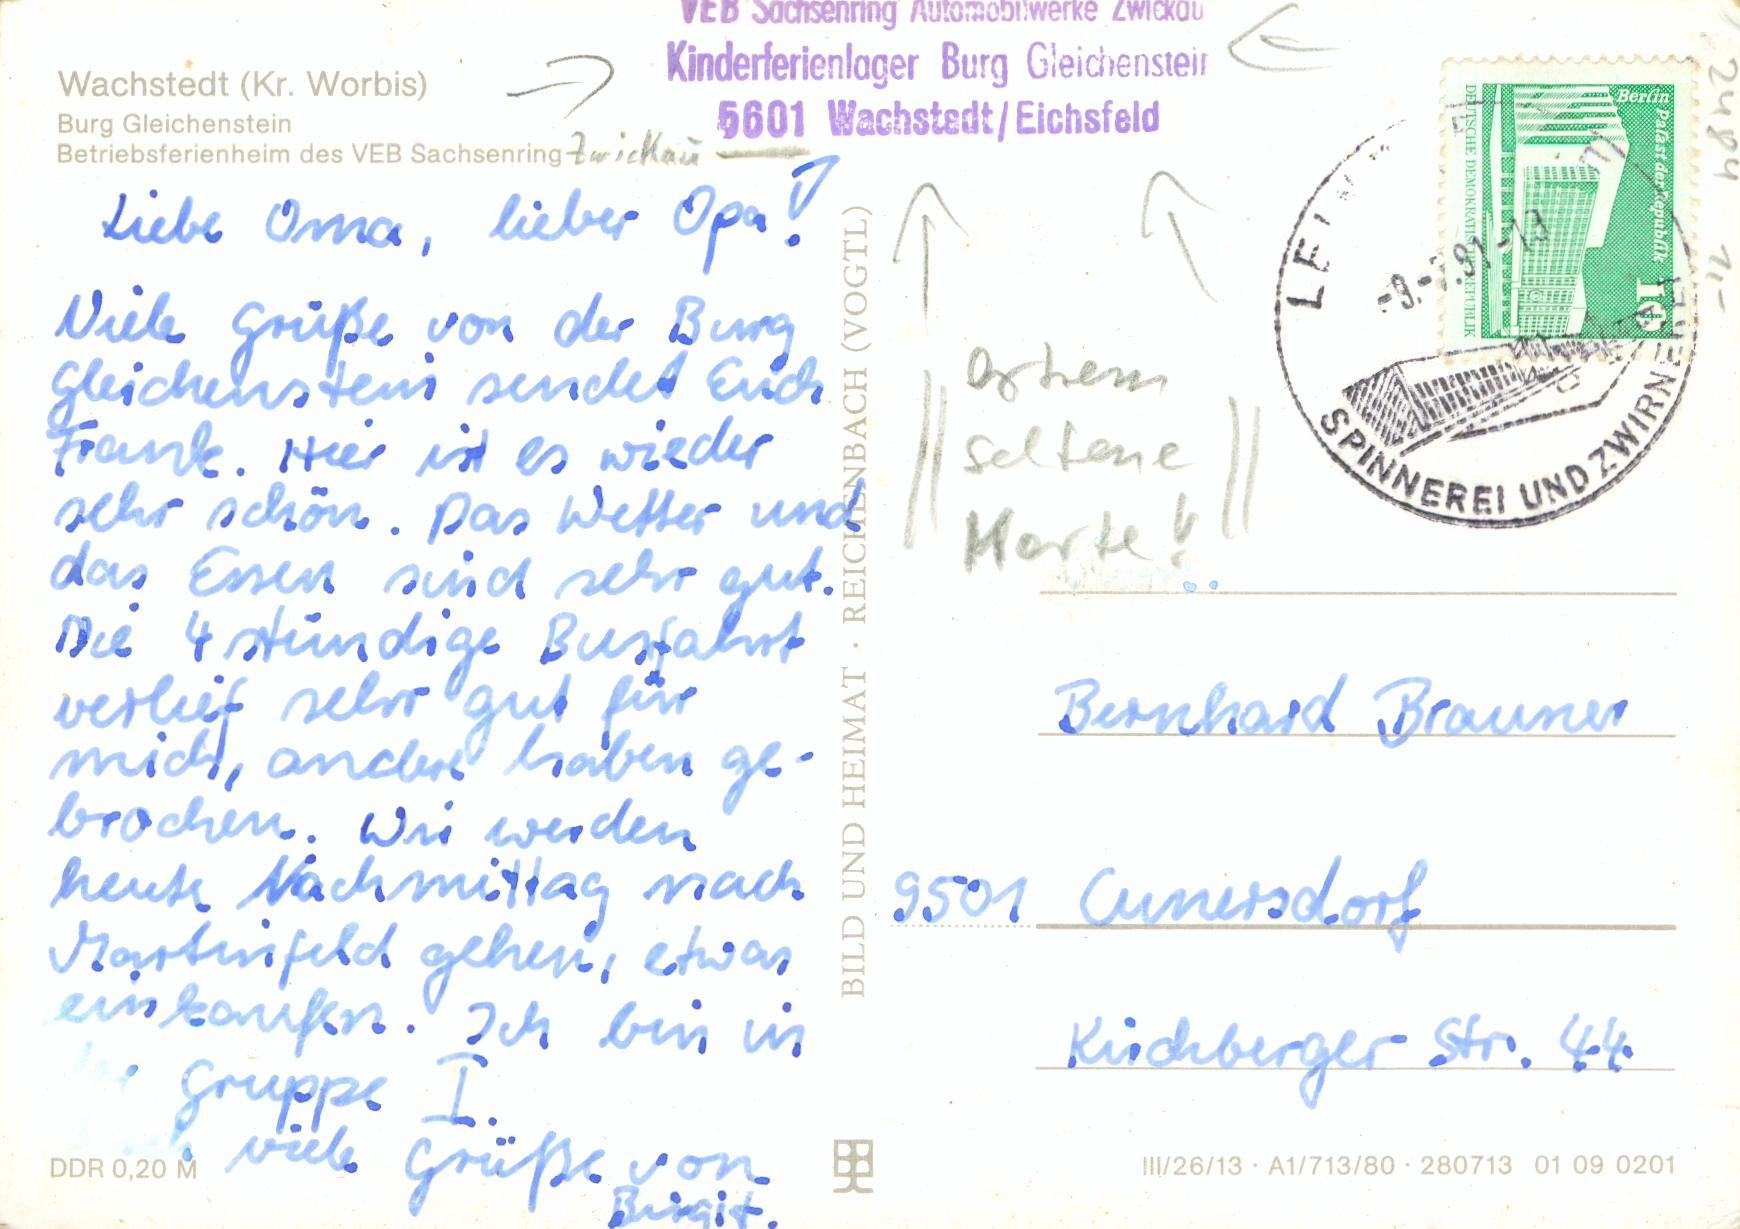 VEB Sachsenring Automobilwerke Zwickau
Kinderferienlager Burg Gleichenstein
5601 Wachstedt/Eichsfeld
Wachstedt (Kr. Worbis)
Burg Gleichenstein
Betriebsferienheim des VEB Sachsenring Zwickau
Liebe Oma, lieber Opa!
Viele Grüße von der Burg
Gleichenstein sendet Euch
Frank. Hier ist es wieder
sehr schön. Das Wetter und
das Essen sind sehr gut.
Die 4 stündige Busfahrt
verlief sehr gut für
mich, andere haben ge-
brochen. Wir werden
heute Nachmittag nach
Martinfeld gehen, etwas
einkaufen. Ich bin in
Gruppe I.
viele Grüße von
Birgit.
DDR 0,20 M
BILD UND HEIMAT · REICHENBACH (VOGTL)
seltene
Karte!
Berlin
Palast der Republik
DEUTSCHE DEMOKRATISCHE REPUBLIK
10
SPINNEREI UND ZWIRNEREI
2484
Bernhard Brauner
9501 Cunersdorf
Kirchberger Str. 44
III/26/13 · A1/713/80 · 280713 01 09 0201